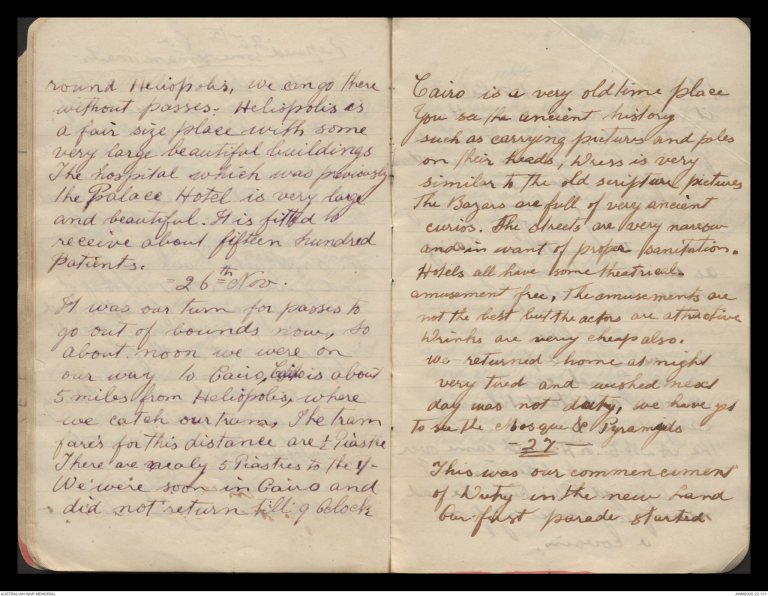 round Heliopolis, we can go there
without passes. Heliopolis is
a fair size place with some
very large beautiful buildings
The hospital which was previously
the Palace Hotel is very large
and beautiful. It is fitted to
receive about fifteen hundred
patients.
26th Nov.
It was our turn for passes to
go out of bounds now, so
about noon we were on
our way to Cairo, Cairo is about
5 miles from Heliopolis, where
we catch our tram, The tram
fares for this distance are ½ Piastre
There are nealy 5 Piastres to the 1/-
We were soon in Cairo and
did not return till 9 Oclock
Cairo is a very old time place
You see the ancient history
such as carrying pictures and poles
on their heads, Dress is very
similar to the old scripture pictures
The Bazars are full of very ancient
curios. The streets are very narrow
and in want of proper sanitation.
Hotels all have some theatrical
amusement free, The amusements are
not the best but the actors are attractive
Drinks are very cheap also.
We returned home at night
very tired and wished next
day was not duty, we have yet
to see the Mosque & Pyramids
- 27 -
This was our commencement
of Duty in the new land
Our first parade started
AUSTRALIAN WAR MEMORIAL